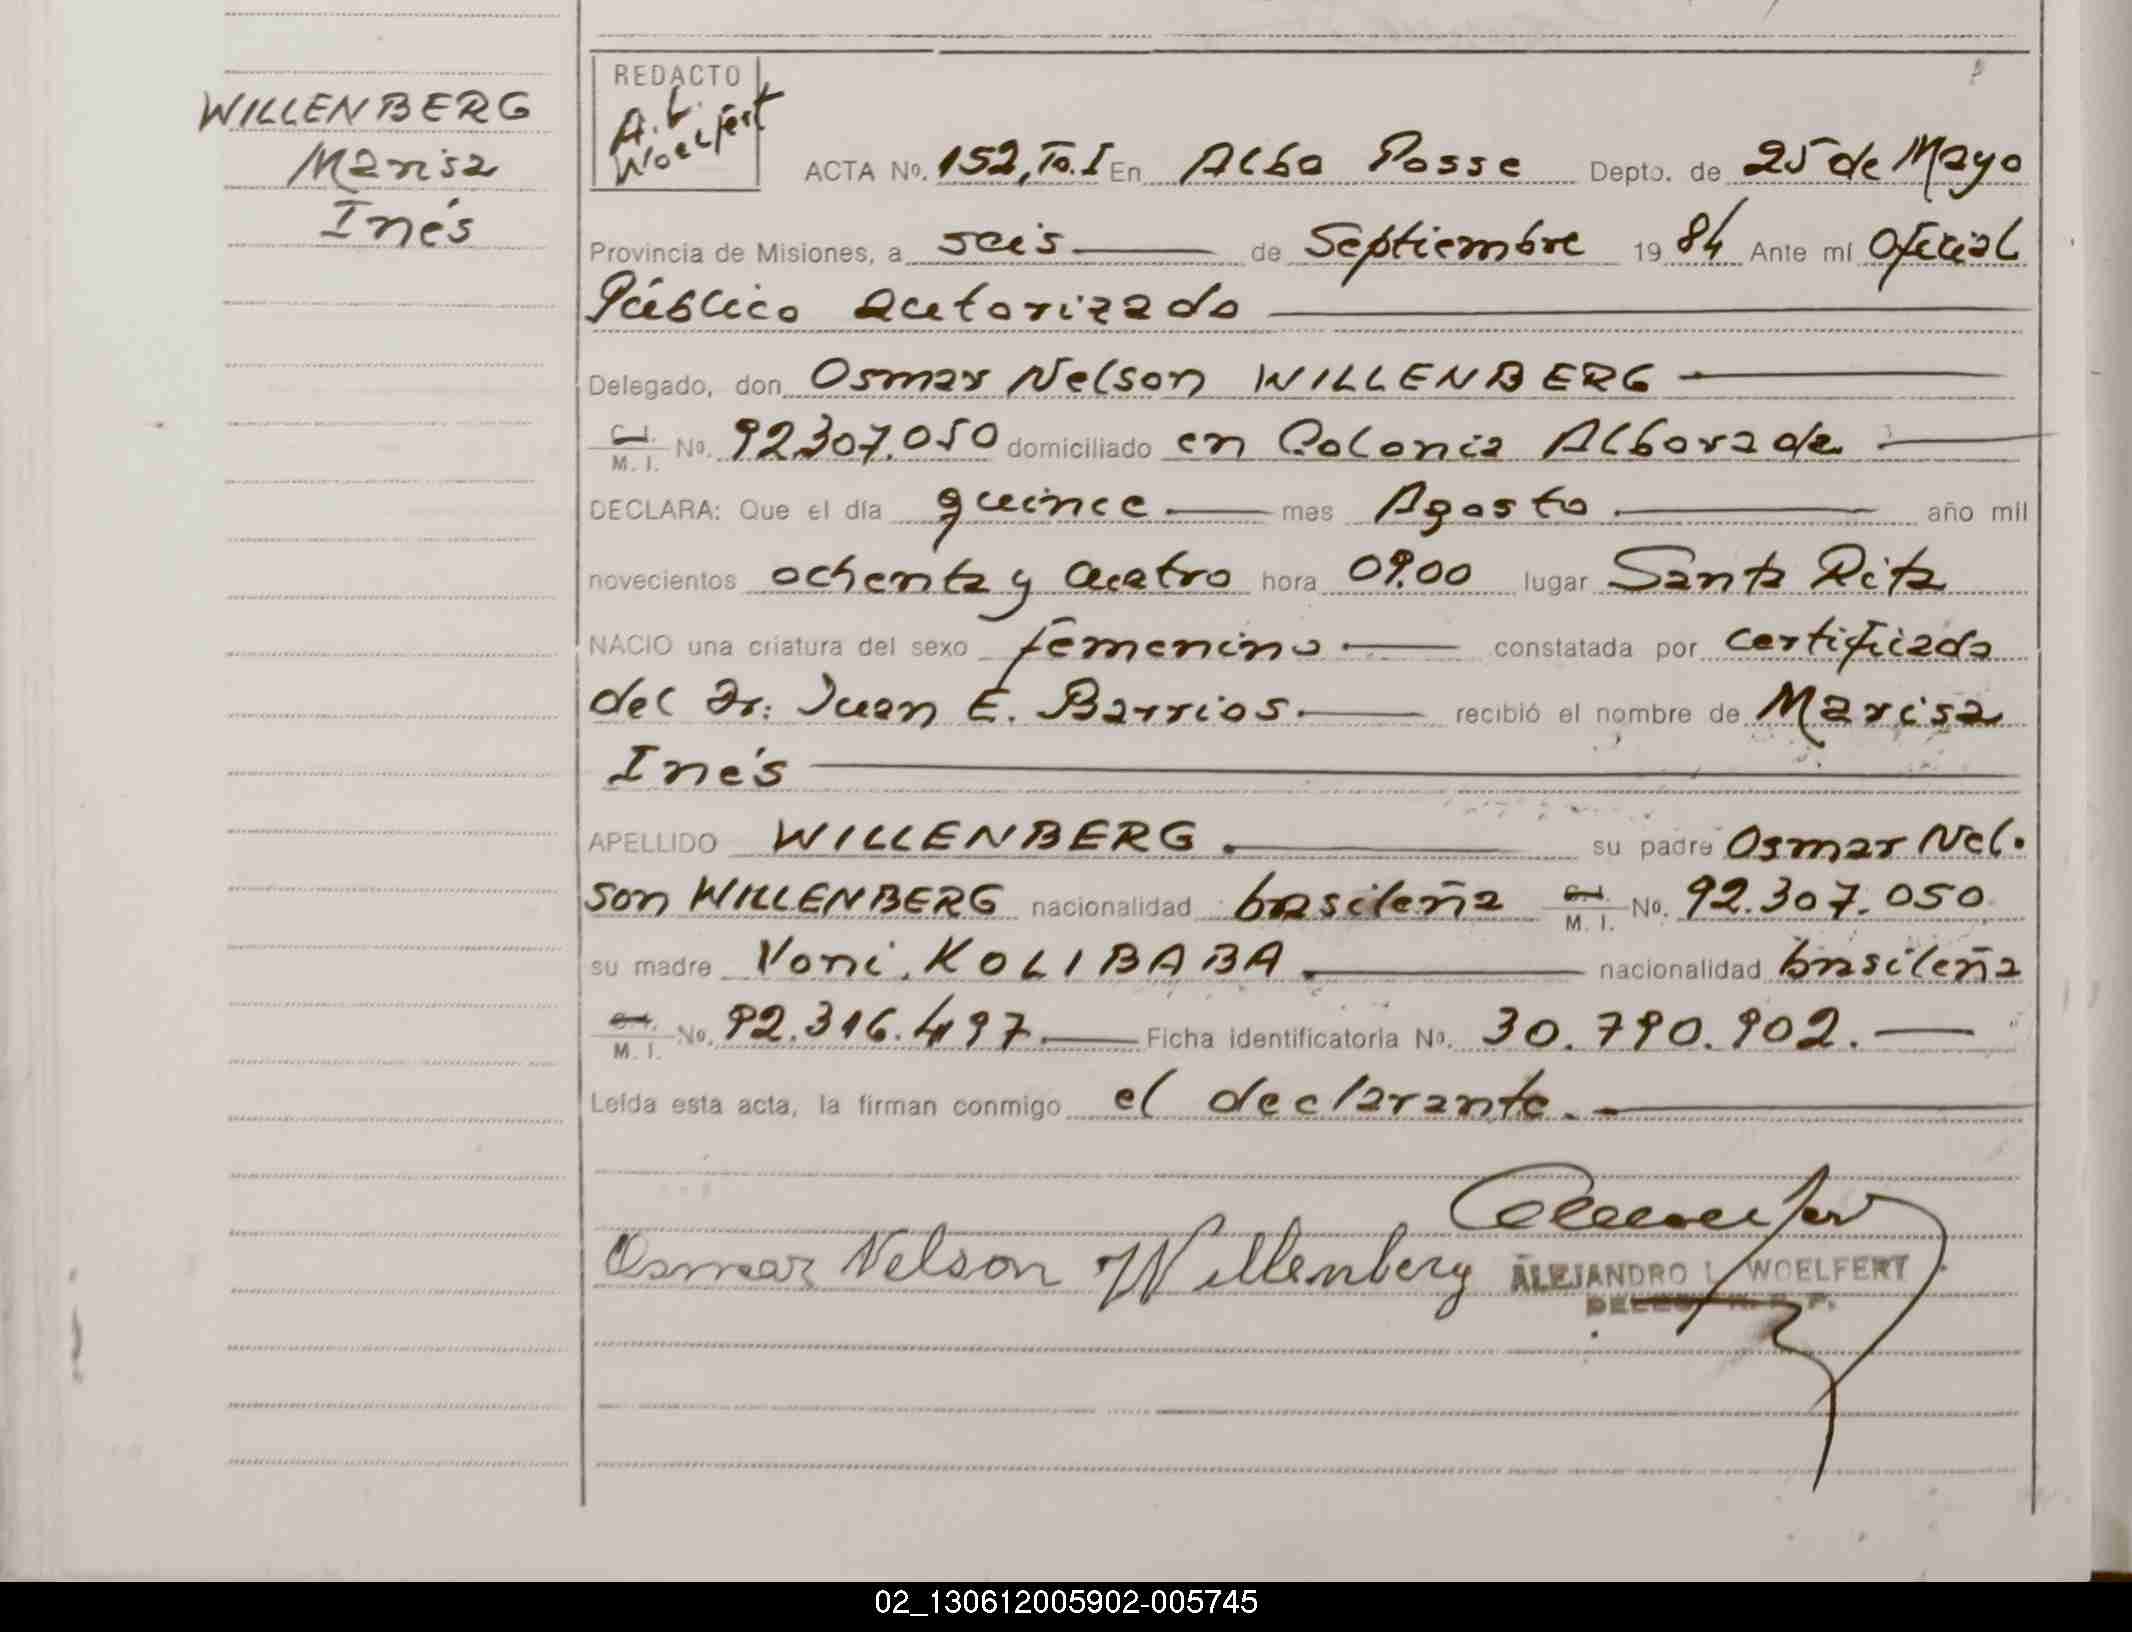 WILLENBERG
Marisa
Inés
REDACTO
A. L.
Woelfert
ACTA No. 152, To. I En Alba Posse Depto. de 25 de Mayo
Provincia de Misiones, a seis de Septiembre 1984 Ante mí Oficial
Público autorizado
Delegado, don Osmar Nelson WILLENBERG
C. I.
M. I. No. 92.307.050 domiciliado en Colonia Alborada
DECLARA: Que el día quince mes Agosto año mil
novecientos ochenta y cuatro hora 09.00 lugar Santa Rita
NACIO una criatura del sexo femenino constatada por certificado
del Dr. Juan E. Barrios. recibió el nombre de Marisa
Inés
APELLIDO WILLENBERG. su padre Osmar Nel-
son WILLENBERG nacionalidad brasileña C. I.
M. I. No. 92.307.050
su madre Noni. KOLIBABA. nacionalidad brasileña
C. I.
M. I. No. 92.316.497. Ficha identificatoria No. 30.790.902.
Leída esta acta, la firman conmigo el declarante.
Osmar Nelson Willenberg
ALEJANDRO L. WOELFERT
02_130612005902-005745